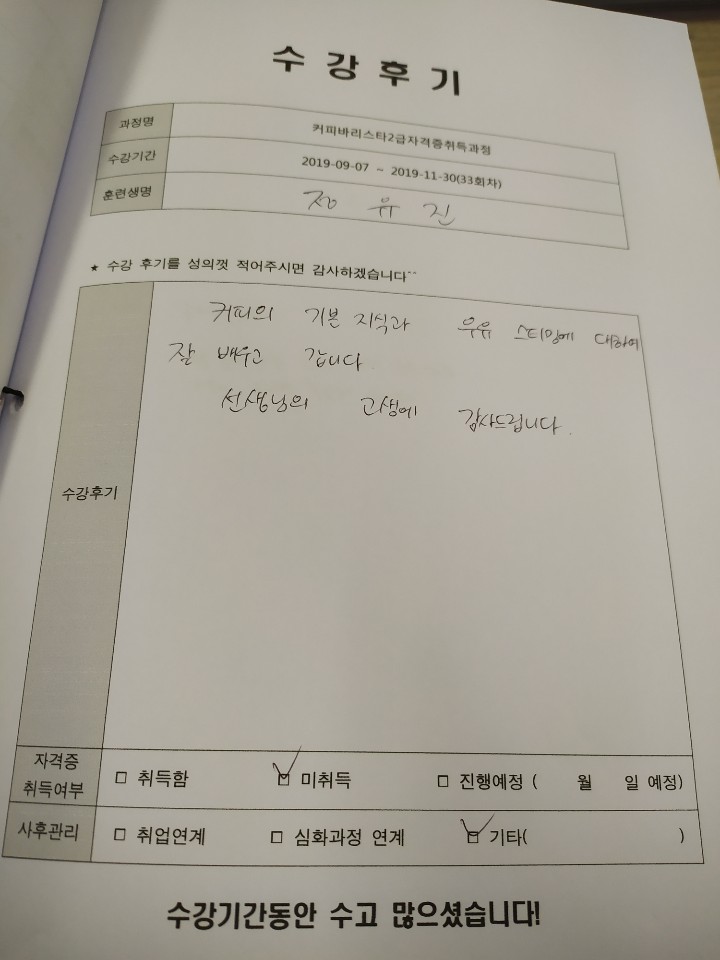 수강후기
과정명 커피바리스타2급자격증취득과정
수강기간 2019-09-07 ~ 2019-11-30(33회차)
훈련생명 정유진
★ 수강 후기를 성의껏 적어주시면 감사하겠습니다^^
커피의 기본 지식과 우유 스티밍에 대하여
잘 배우고 갑니다
선생님의 고생에 감사드립니다.
수강후기
자격증
취득여부 □ 취득함 ☑ 미취득 □ 진행예정 ( 월 일 예정)
사후관리 □ 취업연계 □ 심화과정 연계 ☑ 기타( )
수강기간동안 수고 많으셨습니다!